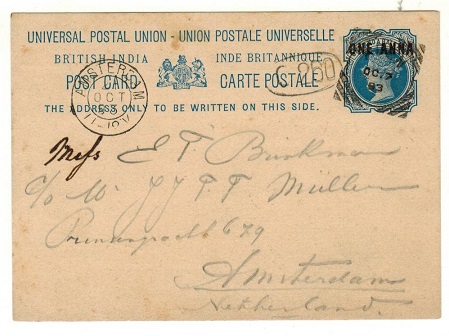 UNIVERSAL POSTAL UNION - UNION POSTALE UNIVERSELLE
BRITISH INDIA INDE BRITANNIQUE
POST CARD CARTE POSTALE
THE ADDRESS ONLY TO BE WRITTEN ON THIS SIDE.
ONE ANNA
AMSTERDAM
OCT
83
260
OC
83
Mess E T Brinkman
c/o Mr J J F F Müller
Prinsengracht 679
Amsterdam
Netherland.